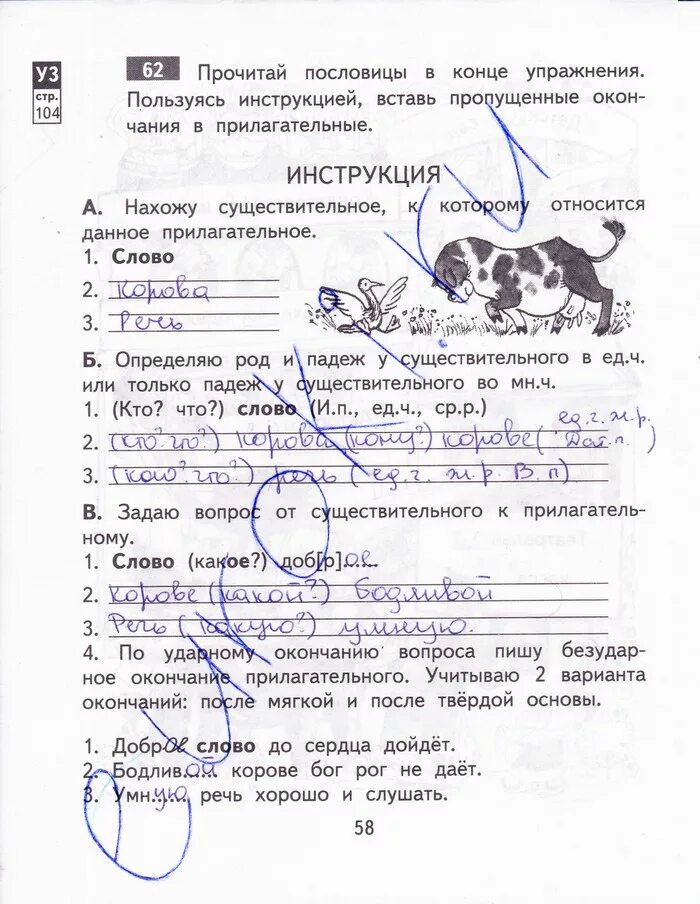 УЗ
стр.
104
62 Прочитай пословицы в конце упражнения.
Пользуясь инструкцией, вставь пропущенные окон-
чания в прилагательные.
ИНСТРУКЦИЯ
А. Нахожу существительное, к которому относится
данное прилагательное.
1. Слово
2. Корова
3. Речь
Б. Определяю род и падеж у существительного в ед.ч.
или только падеж у существительного во мн.ч.
1. (Кто? что?) слово (И.п., ед.ч., ср.р.)
ед.ч. ж.р.
2. (кто? что?) корова (кому?) корове (Дат.п.)
3. (кого? что?) речь (ед.ч. ж.р. В.п)
В. Задаю вопрос от существительного к прилагатель-
ному.
1. Слово (какое?) доб[р]ое
2. корове (какой?) бодливой
3. Речь (какую?) умную.
4. По ударному окончанию вопроса пишу безудар-
ное окончание прилагательного. Учитываю 2 варианта
окончаний: после мягкой и после твёрдой основы.
1. Доброе слово до сердца дойдёт.
2. Бодливой корове бог рог не даёт.
3. Умную речь хорошо и слушать.
58